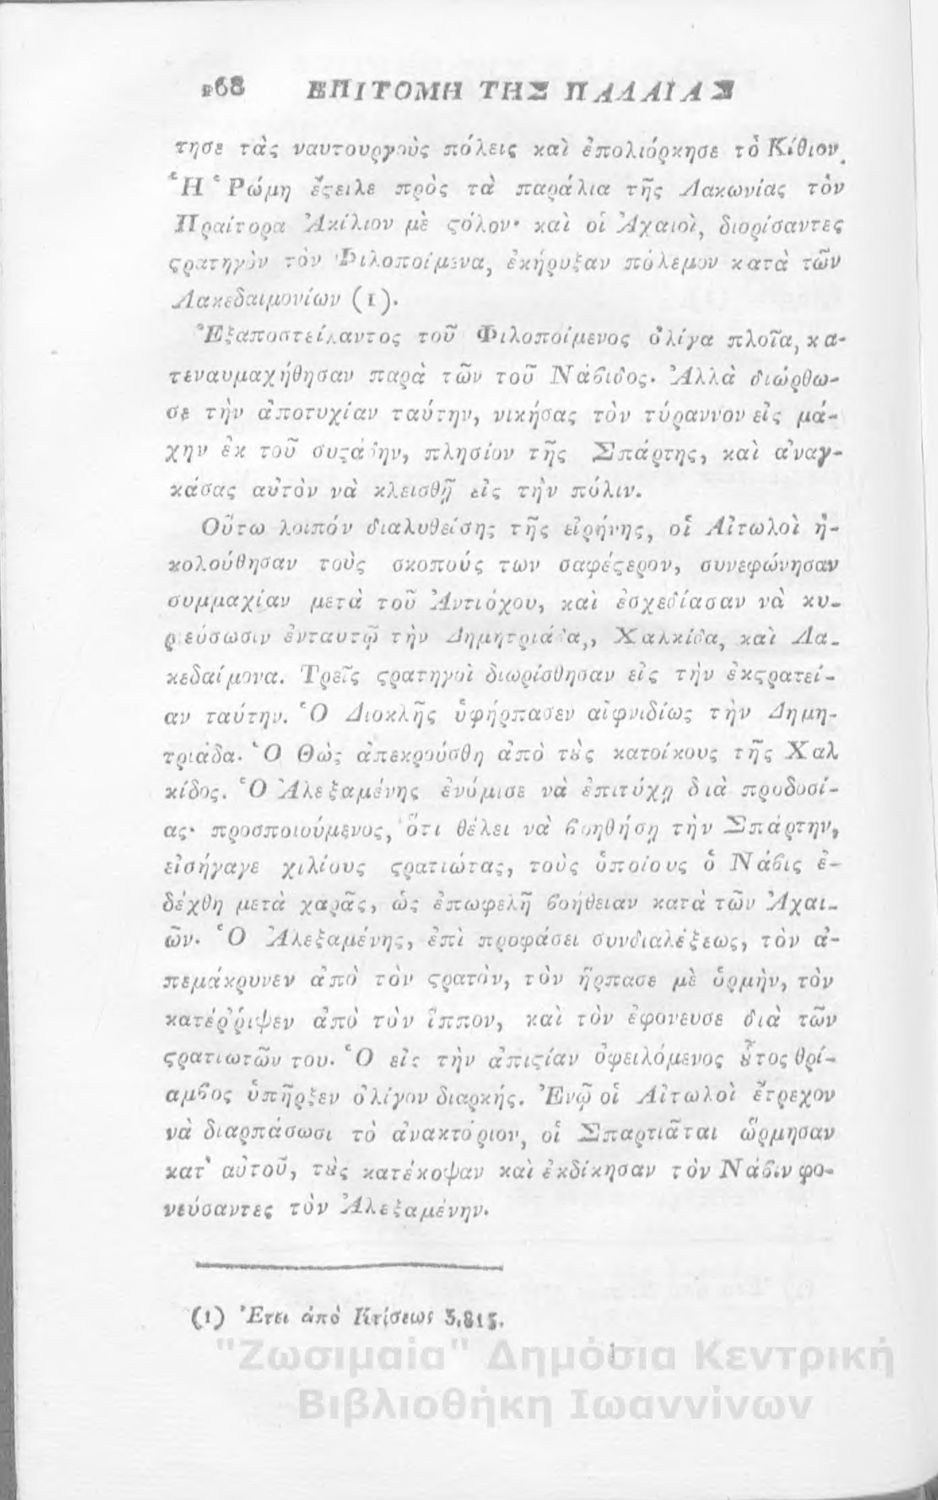 268 ΕΠΙΤΟΜΗ ΤΗΣ ΠΑΛΑΙΑΣ
τησε τὰς ναυτουργοὺς πόλεις καὶ ἐπολιόρκησε τὸ Κίθιον.
Ἡ Ῥώμη ἔϛειλε πρὸς τὰ παράλια τῆς Λακωνίας τὸν
Πραίτορα Ἀκίλιον μὲ ϛόλον· καὶ οἱ Ἀχαιοὶ, διορίσαντες
ϛρατηγὸν τὸν Φιλοποίμενα, ἐκήρυξαν πόλεμον κατὰ τῶν
Λακεδαιμονίων (1).
Ἐξαποστείλαντος τοῦ Φιλοποίμενος ὀλίγα πλοῖα, κα-
τεναυμαχήθησαν παρὰ τῶν τοῦ Νάβιδος. Ἀλλὰ διώρθω-
σε τὴν ἀποτυχίαν ταύτην, νικήσας τὸν τύραννον εἰς μά-
χην ἐκ τοῦ συϛάδην, πλησίον τῆς Σπάρτης, καὶ ἀναγ-
κάσας αὐτὸν νὰ κλεισθῇ εἰς τὴν πόλιν.
Οὕτω λοιπὸν διαλυθείσης τῆς εἰρήνης, οἱ Αἰτωλοὶ ἠ-
κολούθησαν τοὺς σκοπούς των σαφέϛερον, συνεφώνησαν
συμμαχίαν μετὰ τοῦ Ἀντιόχου, καὶ ἐσχεδίασαν νὰ κυ-
ριεύσωσιν ἐνταυτῷ τὴν Δημητριάδα,, Χαλκίδα, καὶ Λα-
κεδαίμονα. Τρεῖς ϛρατηγοὶ διωρίσθησαν εἰς τὴν ἐκϛρατεί-
αν ταύτην. Ὁ Διοκλῆς ὑφήρπασεν αἰφνιδίως τὴν Δημη-
τριάδα. Ὁ Θώς ἀπεκρούσθη ἀπὸ τȣ̀ς κατοίκους τῆς Χαλ
κίδος. Ὁ Ἀλεξαμένης ἐνόμισε νὰ ἐπιτύχῃ διὰ προδοσί-
ας· προσποιούμενος, ὅτι θέλει νὰ βοηθήσῃ τὴν Σπάρτην,
εἰσήγαγε χιλίους ϛρατιώτας, τοὺς ὁποίους ὁ Νάβις ἐ-
δέχθη μετὰ χαρᾶς, ὡς ἐπωφελῆ βοήθειαν κατὰ τῶν Ἀχαι-
ῶν. Ὁ Ἀλεξαμένης, ἐπὶ προφάσει συνδιαλέξεως, τὸν ἀ-
πεμάκρυνεν ἀπὸ τὸν ϛρατὸν, τὸν ἥρπασε μὲ ὁρμὴν, τὸν
κατέῤῥιψεν ἀπὸ τὸν ἵππον, καὶ τὸν ἐφόνευσε διὰ τῶν
ϛρατιωτῶν του. Ὁ εἰς τὴν ἀπιϛίαν ὀφειλόμενος ȣ̓͂τος θρί-
αμβος ὑπῆρξεν ὀλίγον διαρκής. Ἐνῷ οἱ Αἰτωλοὶ ἔτρεχον
νὰ διαρπάσωσι τὸ ἀνακτόριον, οἱ Σπαρτιᾶται ὥρμησαν
κατ' αὐτοῦ, τȣ̀ς κατέκοψαν καὶ ἐκδίκησαν τὸν Νάβιν φο-
νεύσαντες τὸν Ἀλεξαμένην.
(1) Ἔτει ἀπὸ Κτίσεως 3,815.
"Ζωσιμαία" Δημόσια Κεντρική
Βιβλιοθήκη Ιωαννίνων